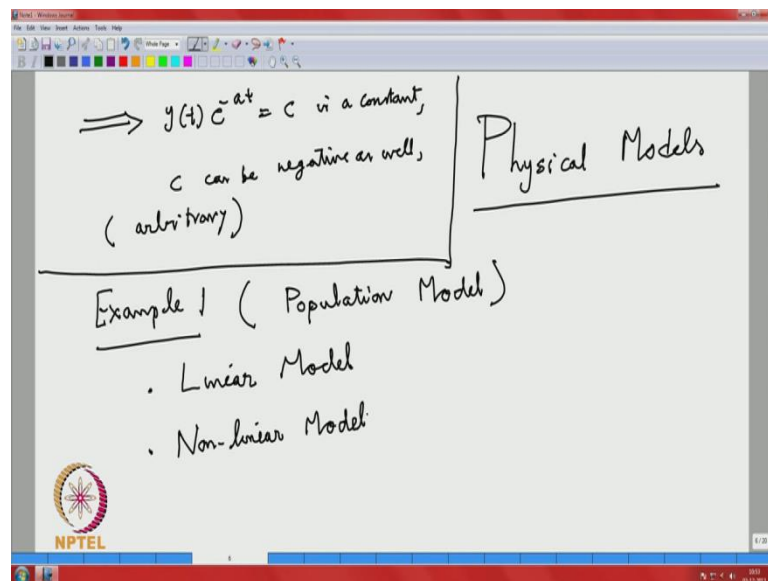 Note1 - Windows Journal
File Edit View Insert Actions Tools Help
Whole Page
⟹ y(t) e^{-at} = C is a constant,
C can be negative as well,
(arbitrary)
Physical Models
Example 1 (Population Model)
. Linear Model
. Non-linear Model.
NPTEL
6